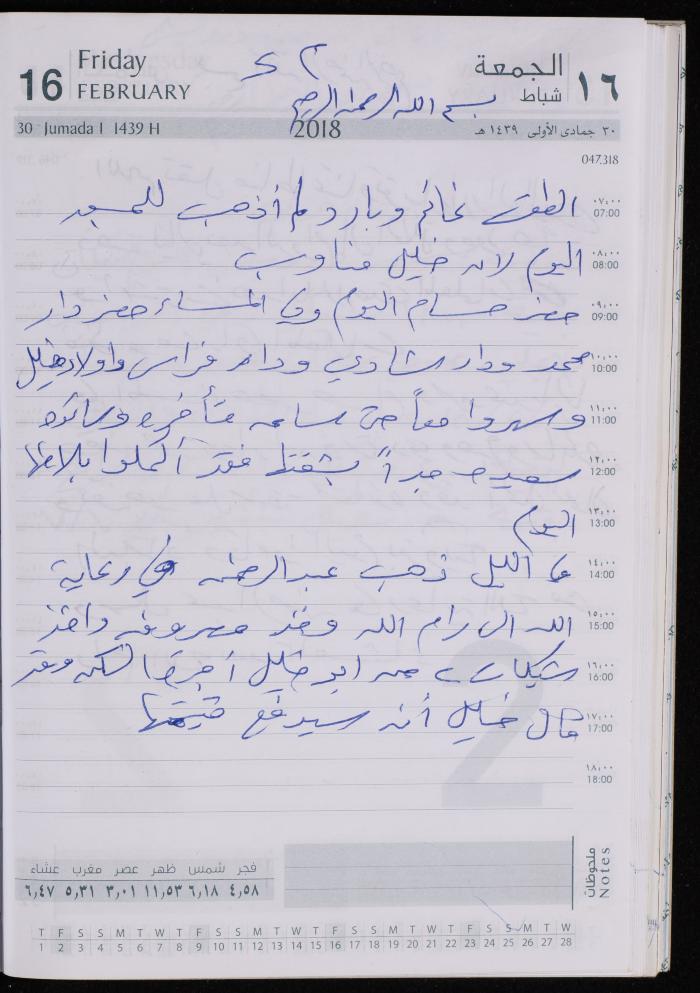 16 Friday FEBRUARY
١٦ الجمعة شباط
بسم الله الرحمن الرحيم
30 Jumada I 1439 H 2018 ٣٠ جمادى الأولى ١٤٣٩ هـ
047.318
٠٧:٠٠ 07:00 الطقس غائم وبارد لم أذهب للمسجد
٠٨:٠٠ 08:00 اليوم لان خليل مناوب
٠٩:٠٠ 09:00 حضر حسام اليوم وفي المساء حضر دار
١٠:٠٠ 10:00 محمد ودار شادي ودار فراس واولاد خليل
١١:٠٠ 11:00 وسهروا معاً حتى ساعه متأخره وسائده
١٢:٠٠ 12:00 سعيده جداً بشقتها فقد أكملوا بلاطها
١٣:٠٠ 13:00 اليوم
١٤:٠٠ 14:00 في الليل ذهب عبد الرحمن في رعاية
١٥:٠٠ 15:00 الله الى رام الله وقد مصروفه واخذ
١٦:٠٠ 16:00 شيكات من ابو خليل أجرة السكن وقد
١٧:٠٠ 17:00 قال خليل أنه سيدفع قيمتها
١٨:٠٠ 18:00
ملحوظات Notes
فجر شمس ظهر عصر مغرب عشاء
٤,٥٨ ٦,١٨ ١١,٥٣ ٣,٠١ ٥,٣١ ٦,٤٧
T F S S M T W T F S S M T W T F S S M T W T F S S M T W
1 2 3 4 5 6 7 8 9 10 11 12 13 14 15 16 17 18 19 20 21 22 23 24 25 26 27 28